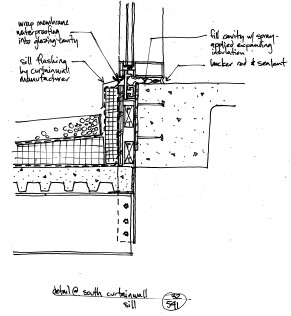 wrap membrane
waterproofing
into glazing cavity
sill flashing
by curtainwall
manufacturer
fill cavity w/ spray-
applied expanding
insulation
backer rod & sealant
detail @ south curtainwall
sill
32
541